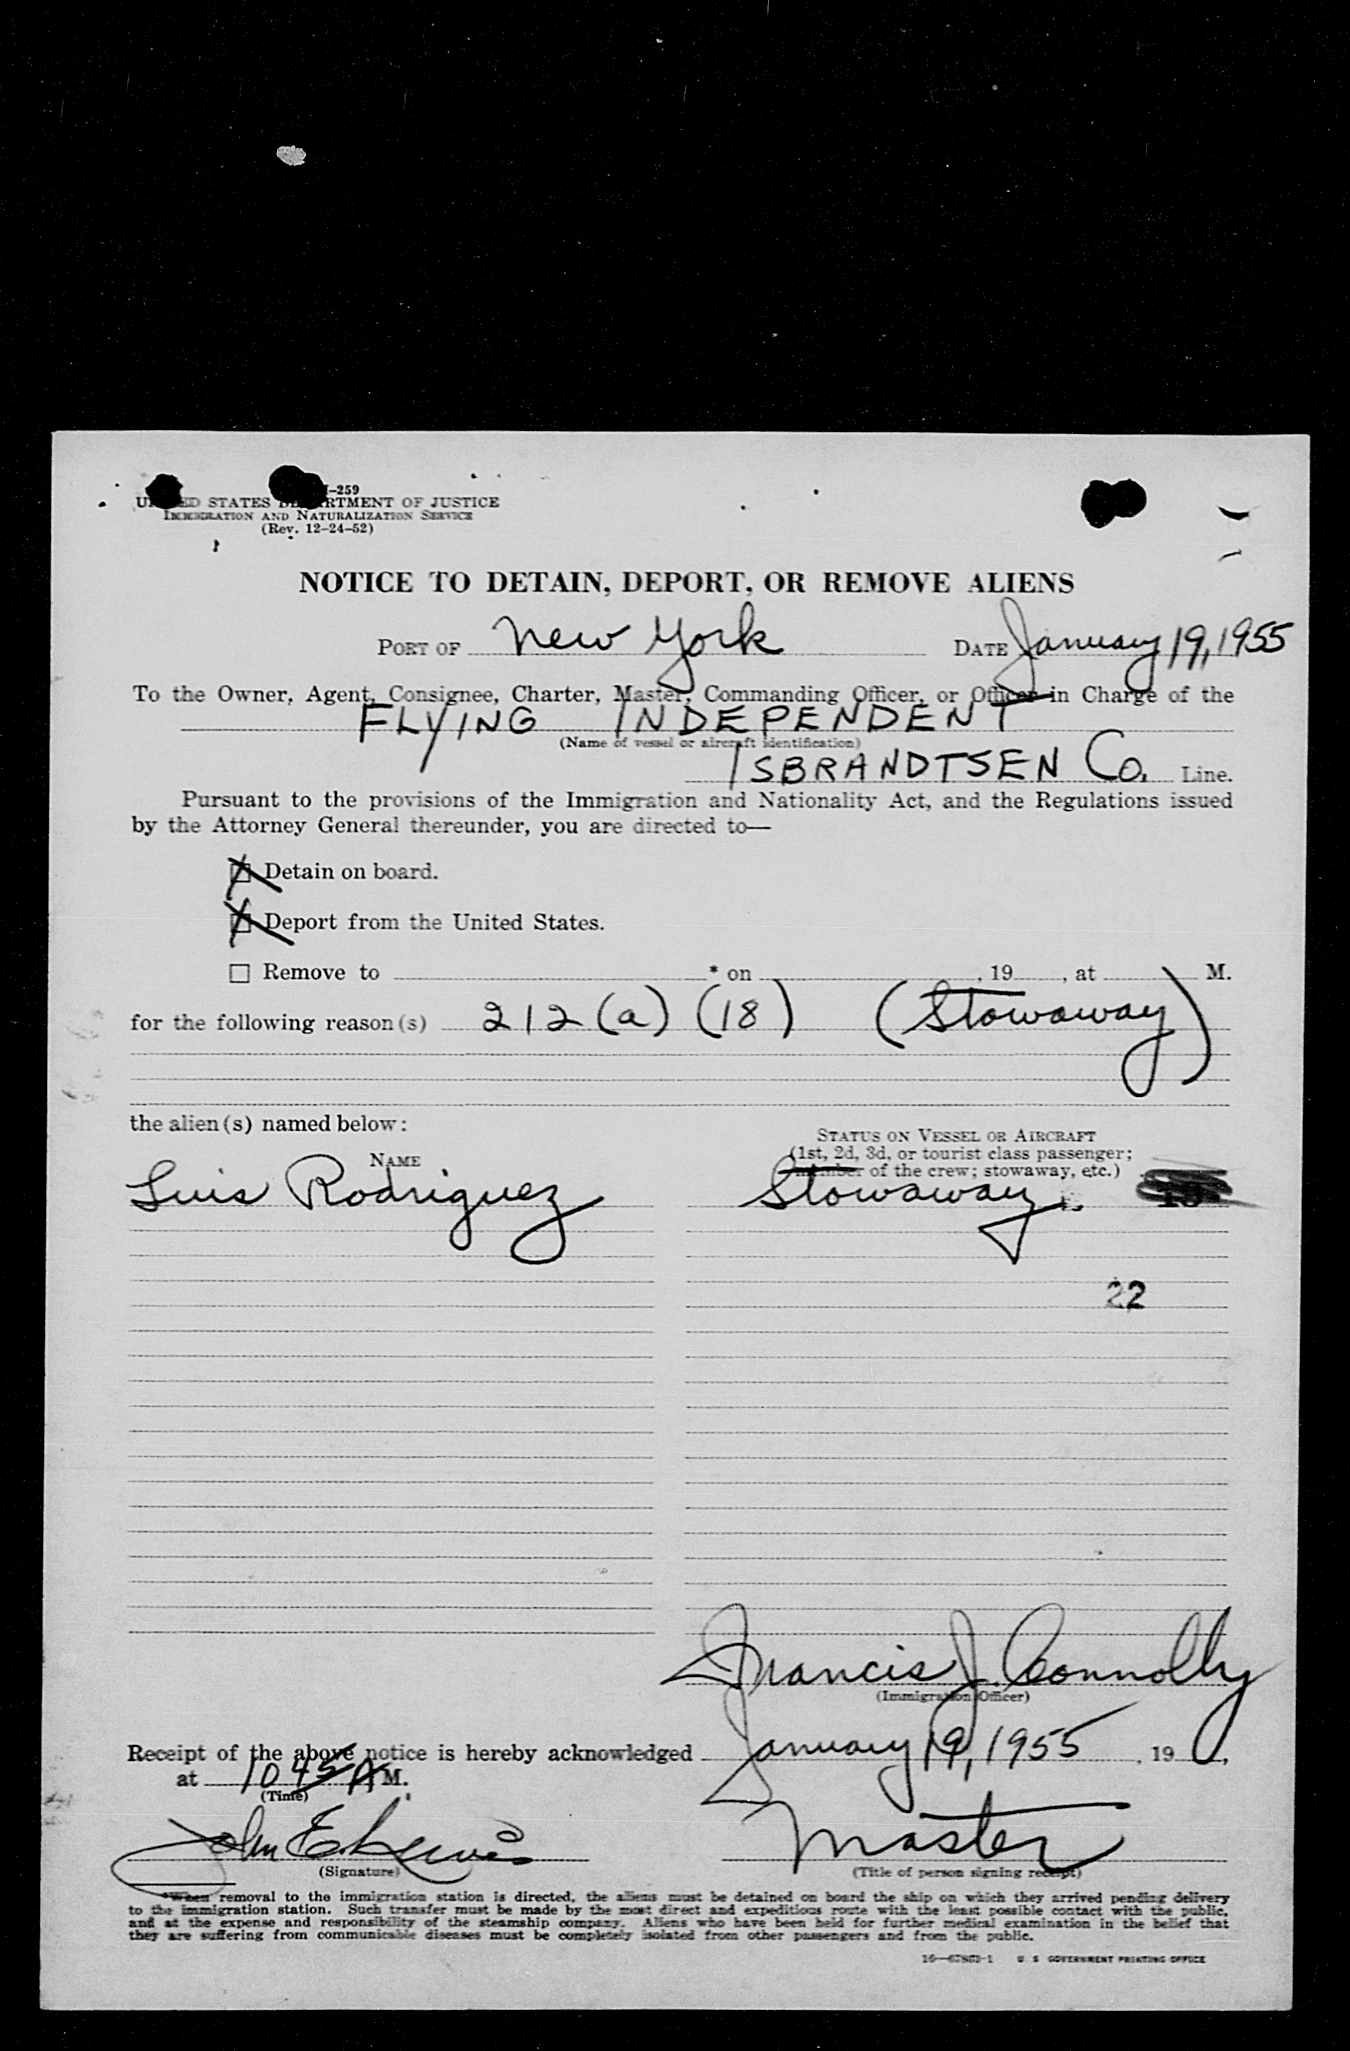 -259
UNITED STATES DEPARTMENT OF JUSTICE
IMMIGRATION AND NATURALIZATION SERVICE
(Rev. 12-24-52)
NOTICE TO DETAIN, DEPORT, OR REMOVE ALIENS
PORT OF New York DATE January 19, 1955
To the Owner, Agent, Consignee, Charter, Master, Commanding Officer, or Officer in Charge of the
FLYING INDEPENDENT
(Name of vessel or aircraft identification)
ISBRANDTSEN Co. Line.
Pursuant to the provisions of the Immigration and Nationality Act, and the Regulations issued
by the Attorney General thereunder, you are directed to—
☒ Detain on board.
☒ Deport from the United States.
☐ Remove to * on , 19 , at M.
for the following reason(s) 212 (a) (18) (Stowaway)
the alien(s) named below:
STATUS ON VESSEL OR AIRCRAFT
(1st, 2d, 3d, or tourist class passenger;
NAME member of the crew; stowaway, etc.)
Luis Rodriguez Stowaway
22
Francis J. Connolly
(Immigration Officer)
Receipt of the above notice is hereby acknowledged January 19, 1955 , 19 ,
at 10 45 A M.
(Time)
John E. Lewis Master
(Signature) (Title of person signing receipt)
*When removal to the immigration station is directed, the aliens must be detained on board the ship on which they arrived pending delivery
to the immigration station. Such transfer must be made by the most direct and expeditious route with the least possible contact with the public,
and at the expense and responsibility of the steamship company. Aliens who have been held for further medical examination in the belief that
they are suffering from communicable diseases must be completely isolated from other passengers and from the public.
U. S. GOVERNMENT PRINTING OFFICE